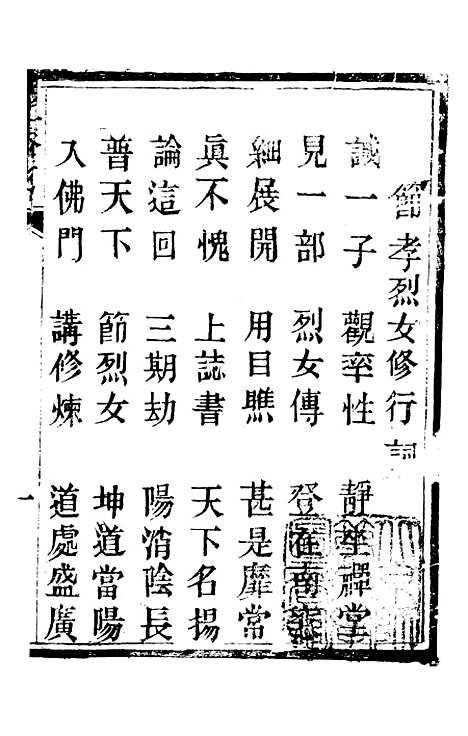 節孝烈女修行詞
誠一子 觀率性 靜坐禪堂
見一部 烈女傳 登在南
細展開 用目瞧 甚是靡常
眞不愧 上誌書 天下名揚
論這回 三期劫 陽消陰長
普天下 節烈女 坤道當陽
入佛門 講修煉 道處盛廣
一